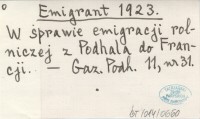 Emigrant 1923.
W sprawie emigracji rol-
niczej z Podhala do Fran-
cji. — Gaz. Podh. 11, nr 31.